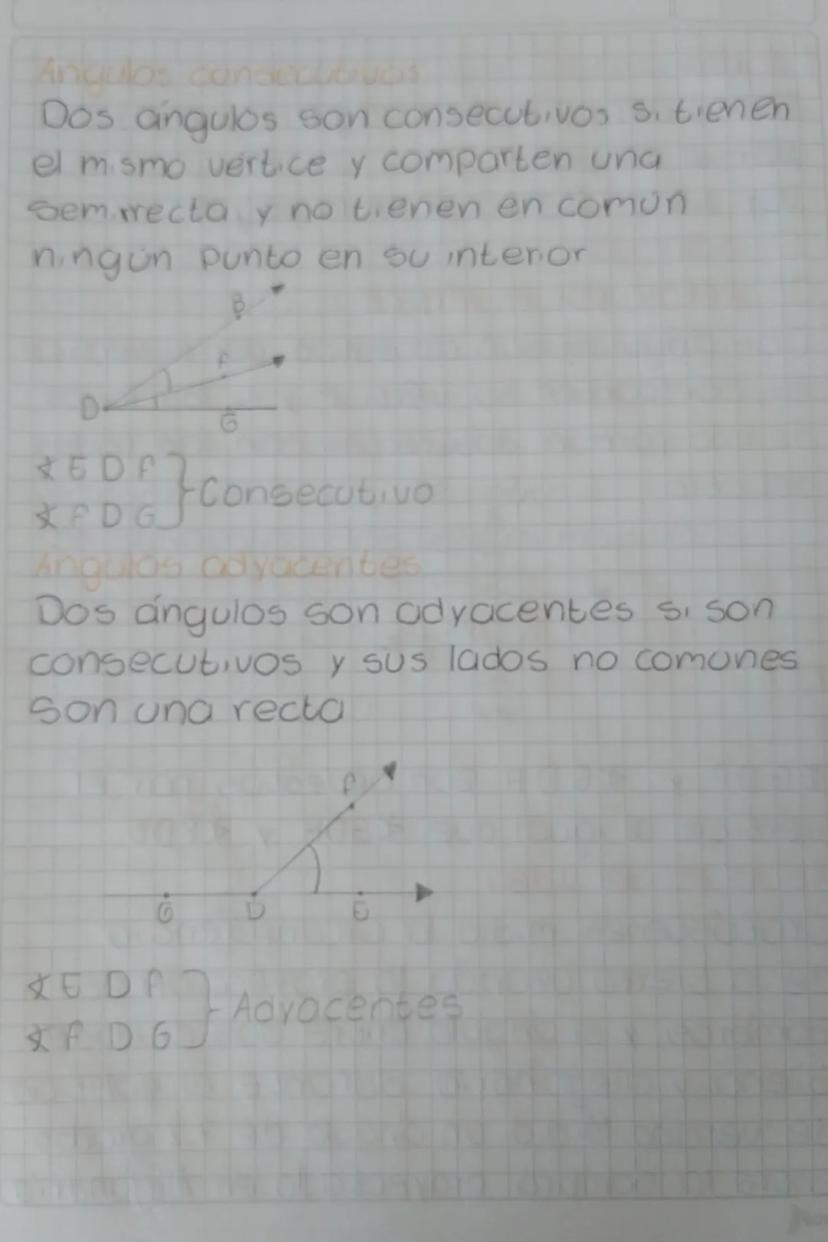 Angulos consecutivos
Dos ángulos son consecutivos si tienen
el mismo vértice y comparten una
semirrecta y no tienen en común
ningún punto en su interior
B
F
D
G
∢ E D F
Consecutivo
∢ F D G
Angulos adyacentes
Dos ángulos son adyacentes si son
consecutivos y sus lados no comunes
son una recta
F
G D E
∢ E D F
Adyacentes
∢ F D G